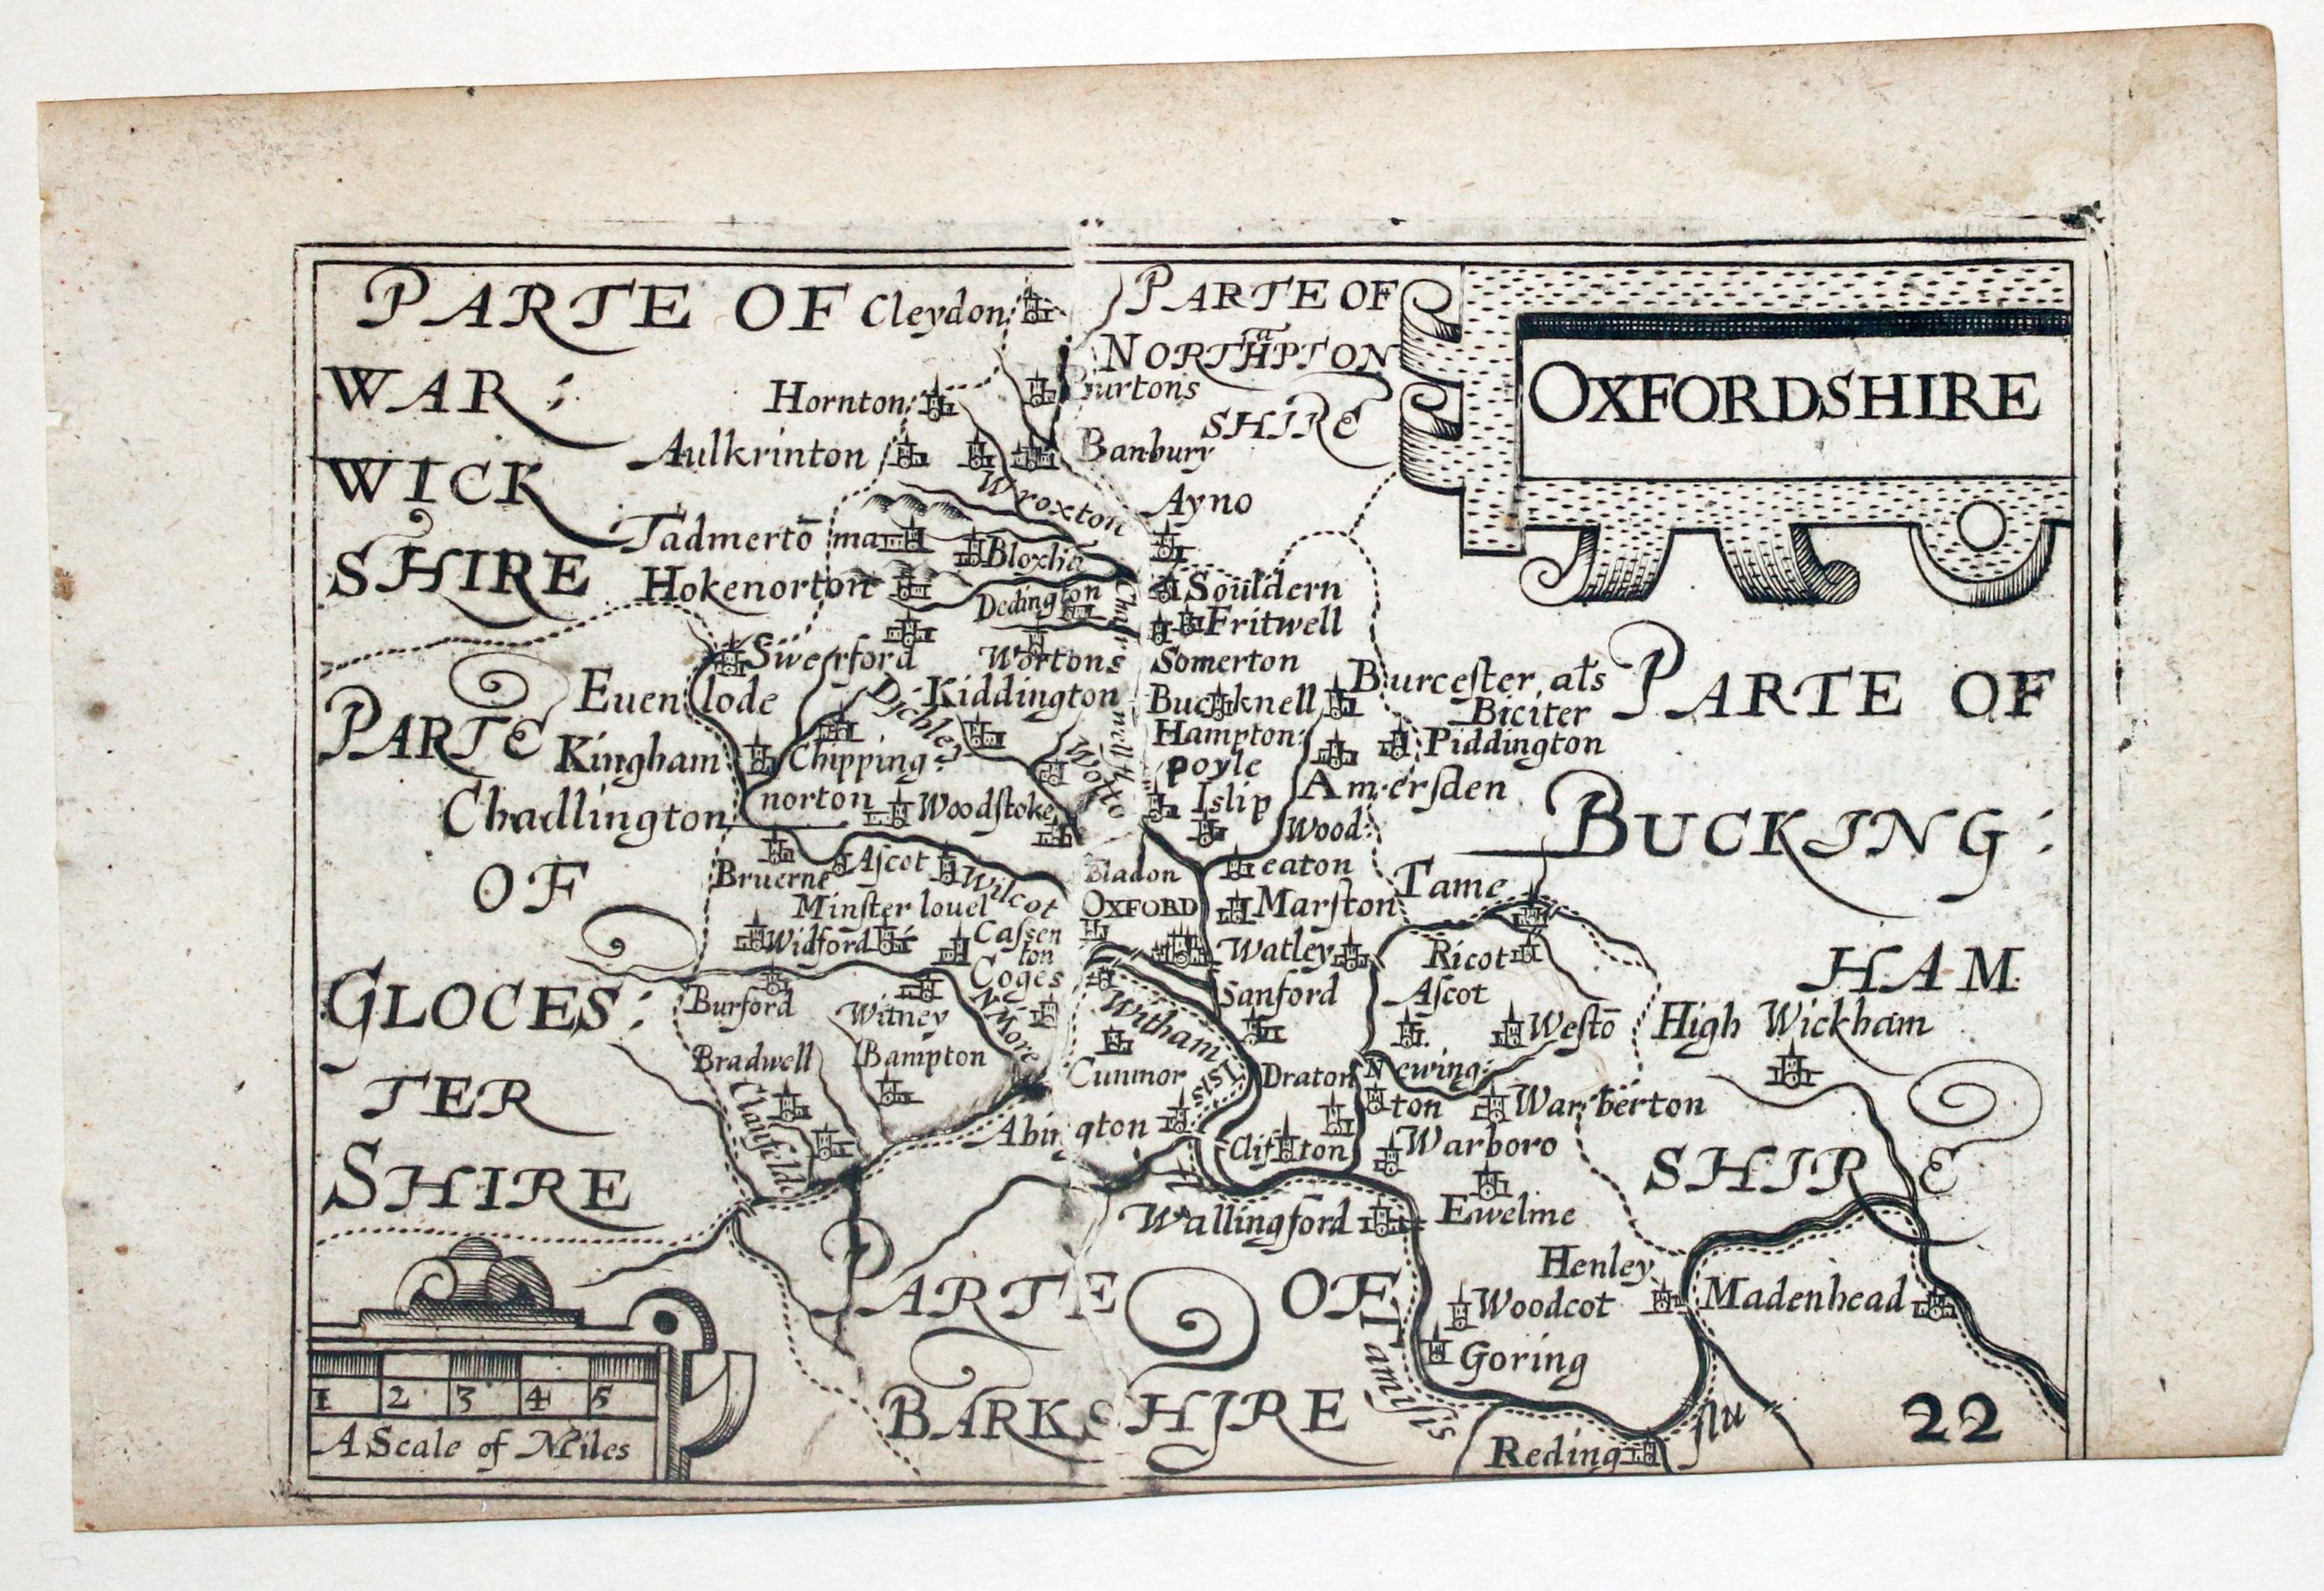 PARTE OF
WAR:
WICK
SHIRE
Cleydon
PARTE OF
NORTHĀPTON
SHIRE
OXFORDSHIRE
Hornton
Burtons
Aulkrinton
Banbury
Wroxton
Ayno
Tadmertō
ma
Bloxhā
Hokenorton
Dedington
Souldern
Fritwell
Swerford
Wortons
Somerton
Euenlode
Dichley
Kiddington
Bucknell
Burceſter als
Biciter
PARTE OF
PARTE
Kingham
Chipping:
norton
Hampton:
poyle
Piddington
Chadlington
Woodſtoke
Iſlip
Amerſden
BUCKING:
OF
Bruerne
Aſcot
Wilcot
Bladon
Wood:
eaton
Minſter louel
OXFORD
Marſton
Tame
Widford
Caſſen
ton
Watley
Ricot
HAM
GLOCES:
TER
SHIRE
Coges
Burford
Witney
N More
Witham
Sanford
Aſcot
Weſtō
High Wickham
Bradwell
Bampton
Cunmor
Isis
Draton
Newing:
ton
Warberton
Clanfelde
Abington
Clifton
Warboro
SHIRE
Wallingford
Ewelme
PARTE OF
BARKSHIRE
Henley
Woodcot
Madenhead
Goring
Tamiſis
flu
Reding
22
1 2 3 4 5
A Scale of Miles